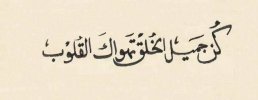 كُن جَميل الخُلق تَهواكَ القُلوب